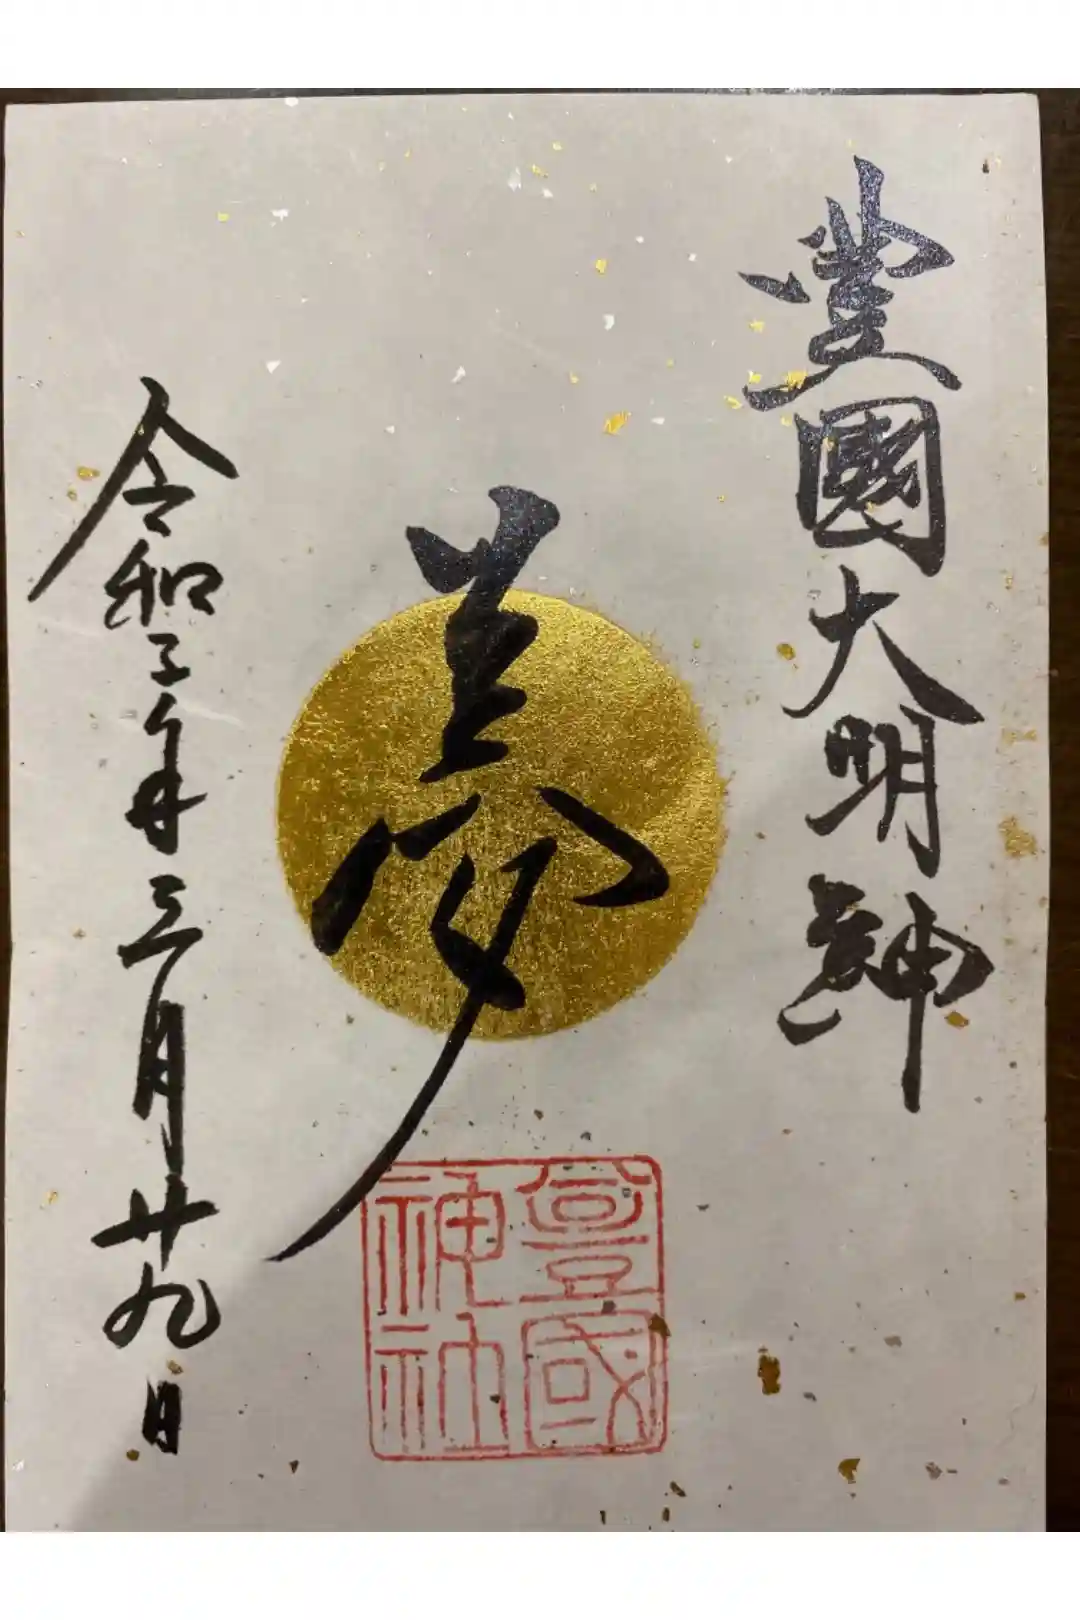 豐國大明神
夢
令和三年三月廿九日
豊國
神社